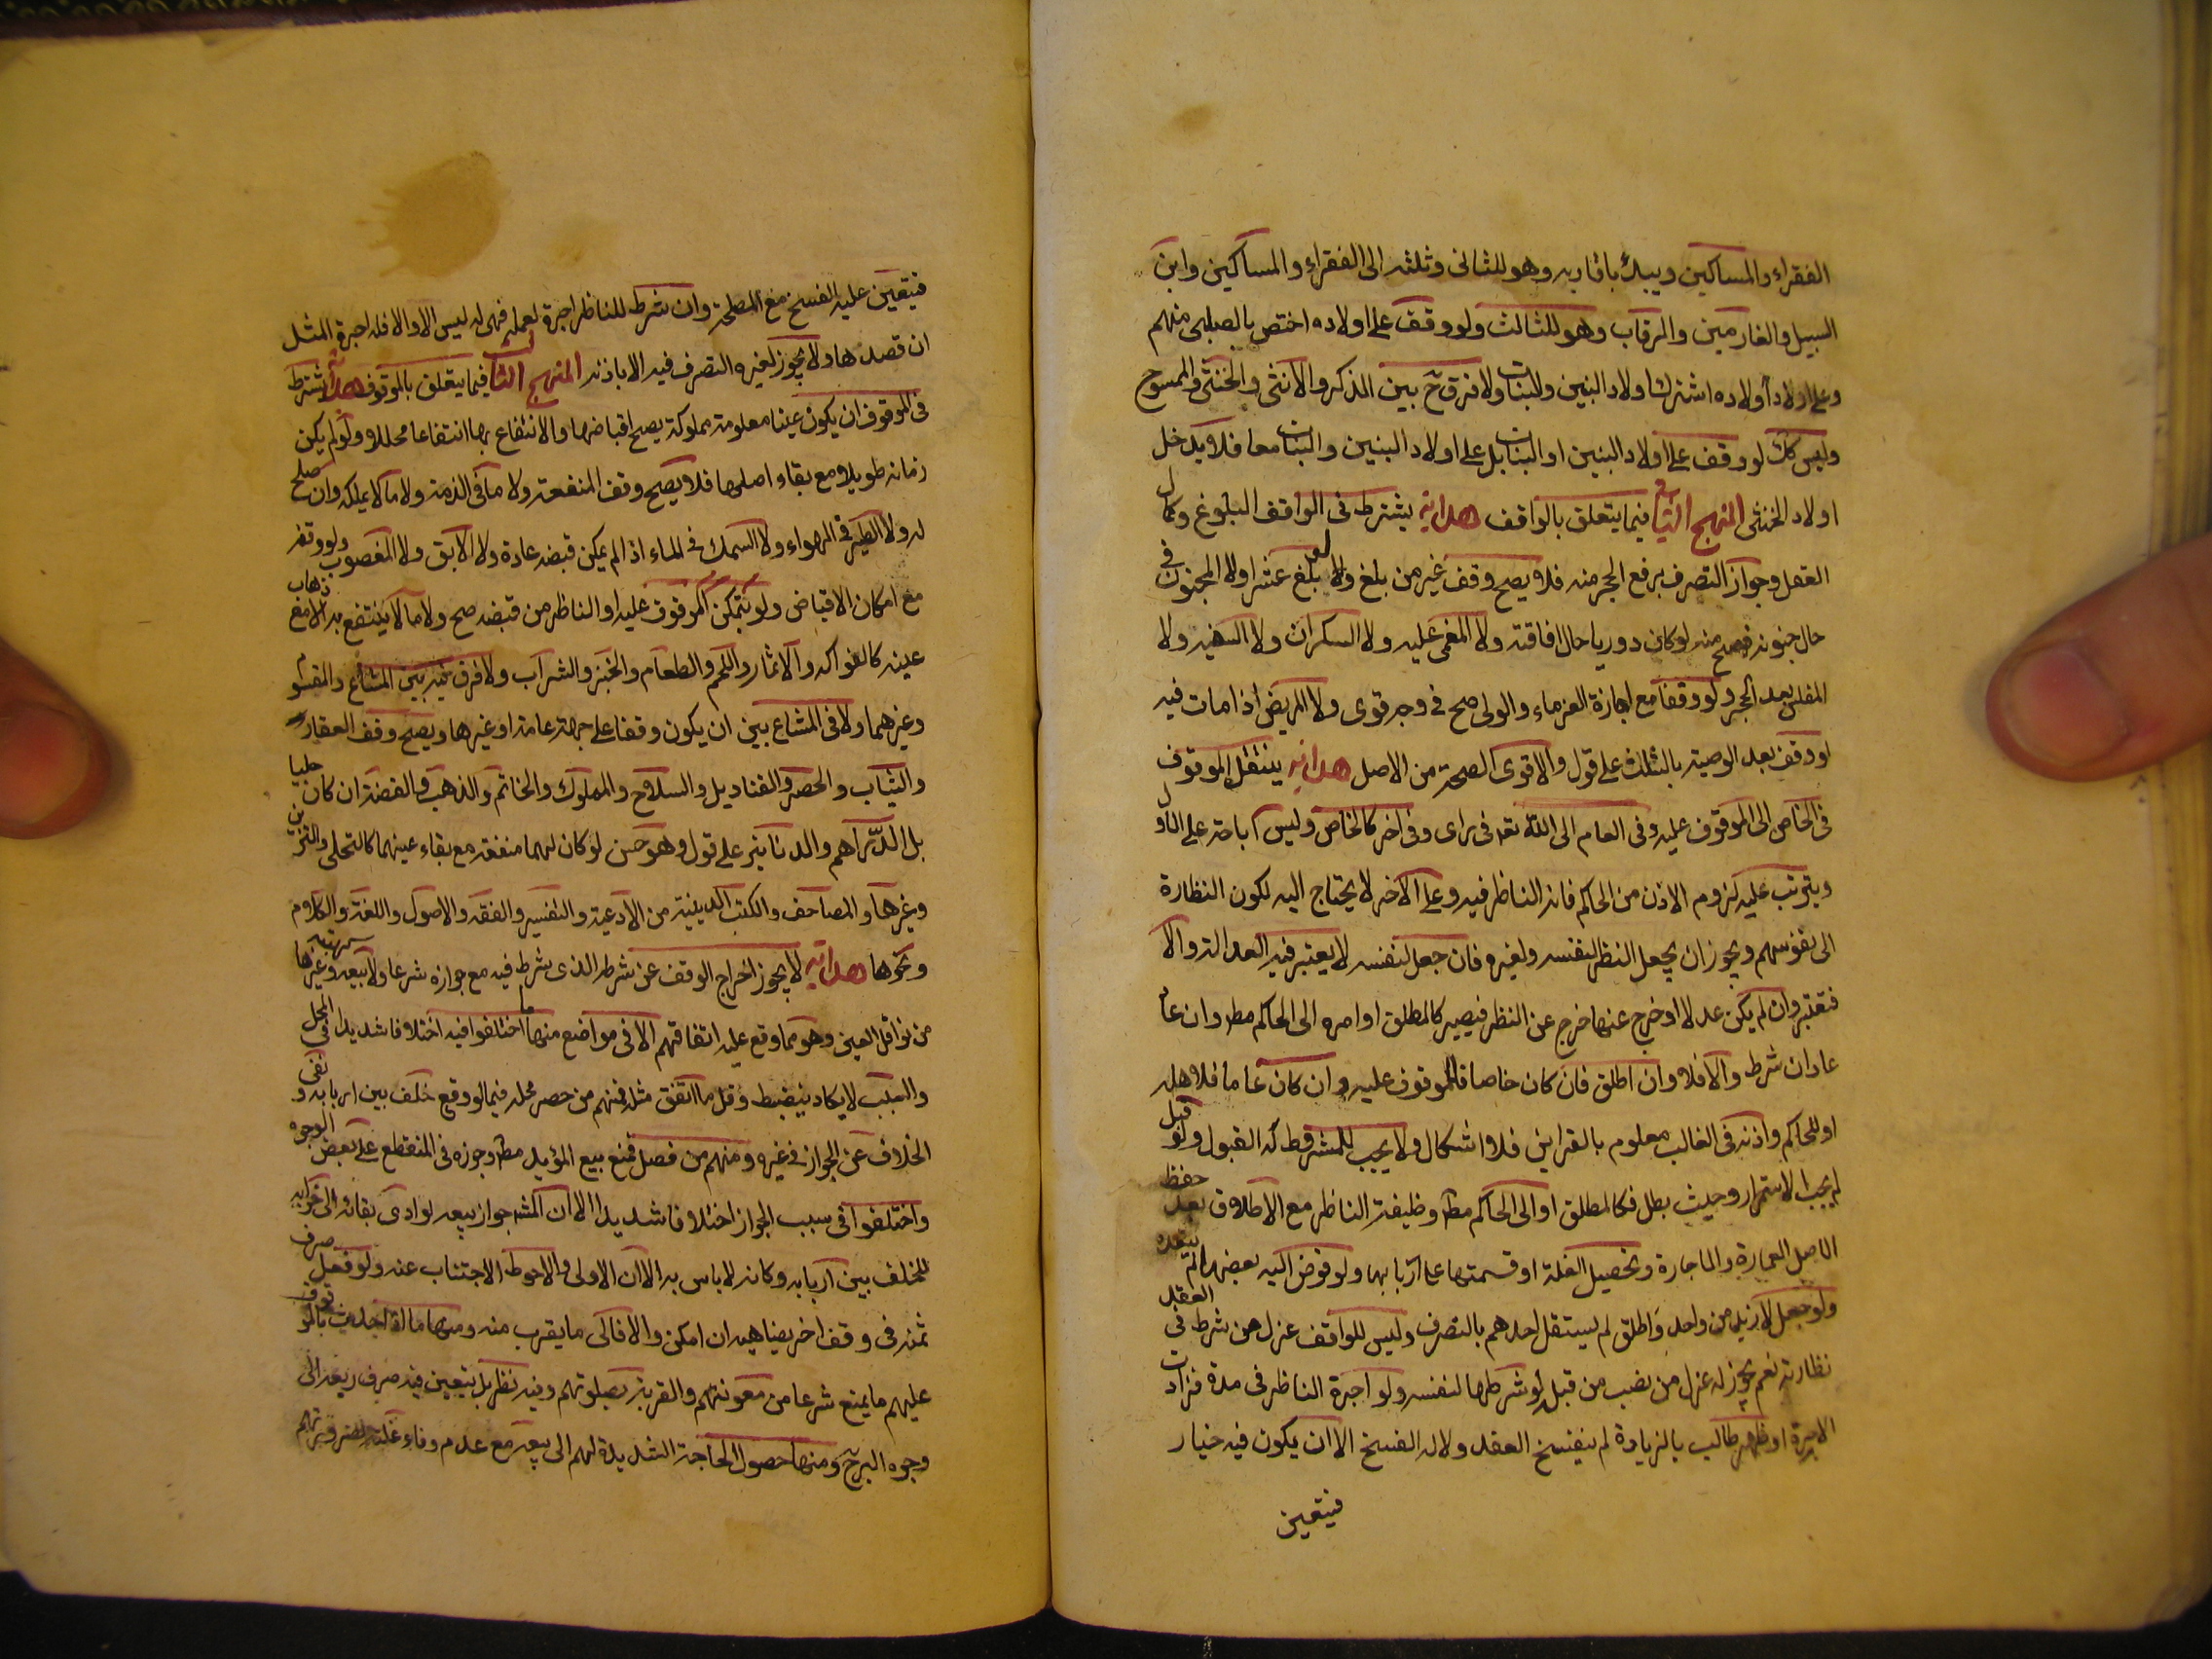 الفقراء والمساكين ويبدأ باقاربه وهو للثانى وثلثه الى الفقراء والمساكين وابن
السبيل والغارمين والرقاب وهو للثالث ولو وقف على اولاده اختص بالصلبى منهم
وعلى اولاد اولاده اشترك اولاد البنين والبنات ولا فرق ح بين الذكر والانثى والخنثى والممسوح
وليس كك لو وقف على اولاد البنين او البنات بل على اولاد البنين والبنات معا فلا يدخل
اولاد الخنثى المنهج الثانى فيما يتعلق بالواقف هداية يشترط فى الواقف البلوغ وكمال
العقل وجواز التصرف برفع الحجر منه فلا يصح وقف غير من بلغ ولو بلغ عشرا ولا المجنون فى
حال جنونه فيصح منه لو كان دوريا حال افاقته ولا المغمى عليه ولا السكران ولا السفيه ولا
المفلس بعد الحجر ولو وقفا مع اجازة الغرماء والولى صح فى وجه قوى ولا المريض اذا مات فيه
او وقف بعد الوصية بالثلث على قول والاقوى الصحة من الاصل هداية ينتقل الموقوف
فى الخاص الى الموقوف عليه وفى العام الى الله تعه فى راى وفى اخر كالخاص وليس اباحة على الاول
ويترتب عليه لزوم الاذن من الحاكم فانه الناظر فيه وعلى الاخر لا يحتاج اليه لكون النظارة
الى نفوسهم ويجوز ان يجعل النظر لنفسه ولغيره فان جعل لنفسه لا يعتبر فيه العدالة والا
فتعتبر وان لم يكن عدلا او خرج عنها خرج عن النظر فيصير كالمطلق او امره الى الحاكم مط وان عاد
عاد ان شرط والا فلا وان اطلق فان كان خاصا فللموقوف عليه وان كان عاما فلاهله
او للحاكم واذنه فى الغالب معلوم بالقراين فلا اشكال ولا يجب للمشروط له القبول ولو قبل
لم يجب الاستمرار وحيث بطل فكالمطلق او الى الحاكم مط وظيفة الناظر مع الاطلاق حفظ
الاصل العمارة والاجارة وتحصيل الغلة او قسمتها على اربابها ولو فوض اليه بعضها لم يتعده
ولو جعل لازيد من واحد واطلق لم يستقل احدهم بالتصرف وليس للواقف عزل من شرط فى العقد
نظارته نعم يجوز له عزل من نصب من قبل لو شرطها لنفسه ولو اجره الناظر فى مدة فزادت
الاجرة او ظهر طالب بالزيادة لم ينفسخ العقد ولا له الفسخ الا ان يكون فيه خيار
فيتعين
فيتعين عليه الفسخ مع المصلحة وان شرط للناظر اجرة لعمله فهى له ليس الا والا فله اجرة المثل
ان قصدها ولا يجوز لغيره التصرف فيه الا باذنه المنهج الثالث فيما يتعلق بالموقوف هداية يشترط
فى الموقوف ان يكون عينا معلومة مملوكة يصح اقباضها والانتفاع بها انتفاعا محللا ولو لم يكن
زمانه طويلا مع بقاء اصلها فلا يصح وقف المنفعة ولا ما فى الذمة ولا ما لا يملكه وان صلح
له ولا الطير فى الهواء ولا السمك فى الماء اذا لم يمكن قبضه عادة ولا الابق ولا المغصوب ولو وقفه
مع امكان الاقباض ولو بتمكن الموقوف عليه او الناظر من قبضه صح ولا ما لا ينتفع به الا مع ذهاب
عينه كالفواكه والاثمار واللحم والطعام والخبز والشراب ولا فرق فيه بين المشاع والمقسوم
وغيرهما ولا فى المشاع بين ان يكون وقفا على جهة عامة او غيرها ويصح وقف العقار
والثياب والحصر والقناديل والسلاح والمملوك والخاتم والذهب والفضة ان كان حليا
بل الدراهم والدنانير على قول وهو حسن لو كان لهما منفعة مع بقاء عينهما كالتحلى والتزين
وغيرها والمصاحف والكتب الدينية من الادعية والتفسير والفقه والاصول واللغة والكلام
ونحوها هداية لا يجوز اخراج الوقف عن شرطه الذى شرط فيه مع جوازه شرعا ولا بيعه وغيرها
من نواقل العين وهو مما وقع عليه اتفاقهم الا فى مواضع منها ما اختلفوا فيه اختلافا شديدا فى المحل
والسبب لا يكاد ينضبط وقل ما اتفق مثله فمنهم من حصر محله فيما لو وقع خلف بين اربابه ونفى
الخلاف عن الجواز فى غيره ومنهم من فصل فمنع بيع المؤبد مط وجوزه فى المنقطع على بعض الوجوه
واختلفوا فى سبب الجواز اختلافا شديدا الا ان المشه جواز بيعه لو ادى بقائه الى خرابه
للخلف بين اربابه وكانه لا باس به الا ان الاولى والاحوط الاجتناب عنه ولو فعل صرف
ثمنه فى وقف اخر يضاهيه ان امكن والا فالى ما يقرب منه ومنها ما لو
عليهم ما يمنع شرعا من معونتهم والقربة بصلوتهم وفيه نظر بل يتعين فيه صرف ريعه الى
وجوه البر ح ومنها حصول الحاجة الشديدة لهم الى بيعه مع عدم وفاء غلته لضرورتهم